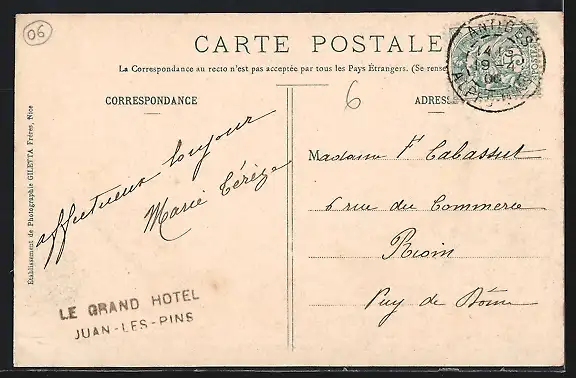 06
CARTE POSTALE
La Correspondance au recto n'est pas acceptée par tous les Pays Étrangers. (Se rense
ANTIBES
19-4
06
6
CORRESPONDANCE
affectueux bonjour
Marie Térèze
LE GRAND HOTEL
JUAN-LES-PINS
Établissement de Photographie GILETTA Frères, Nice
ADRESS
Madame F Cabassut
6 rue du Commerce
Riom
Puy de Dôme